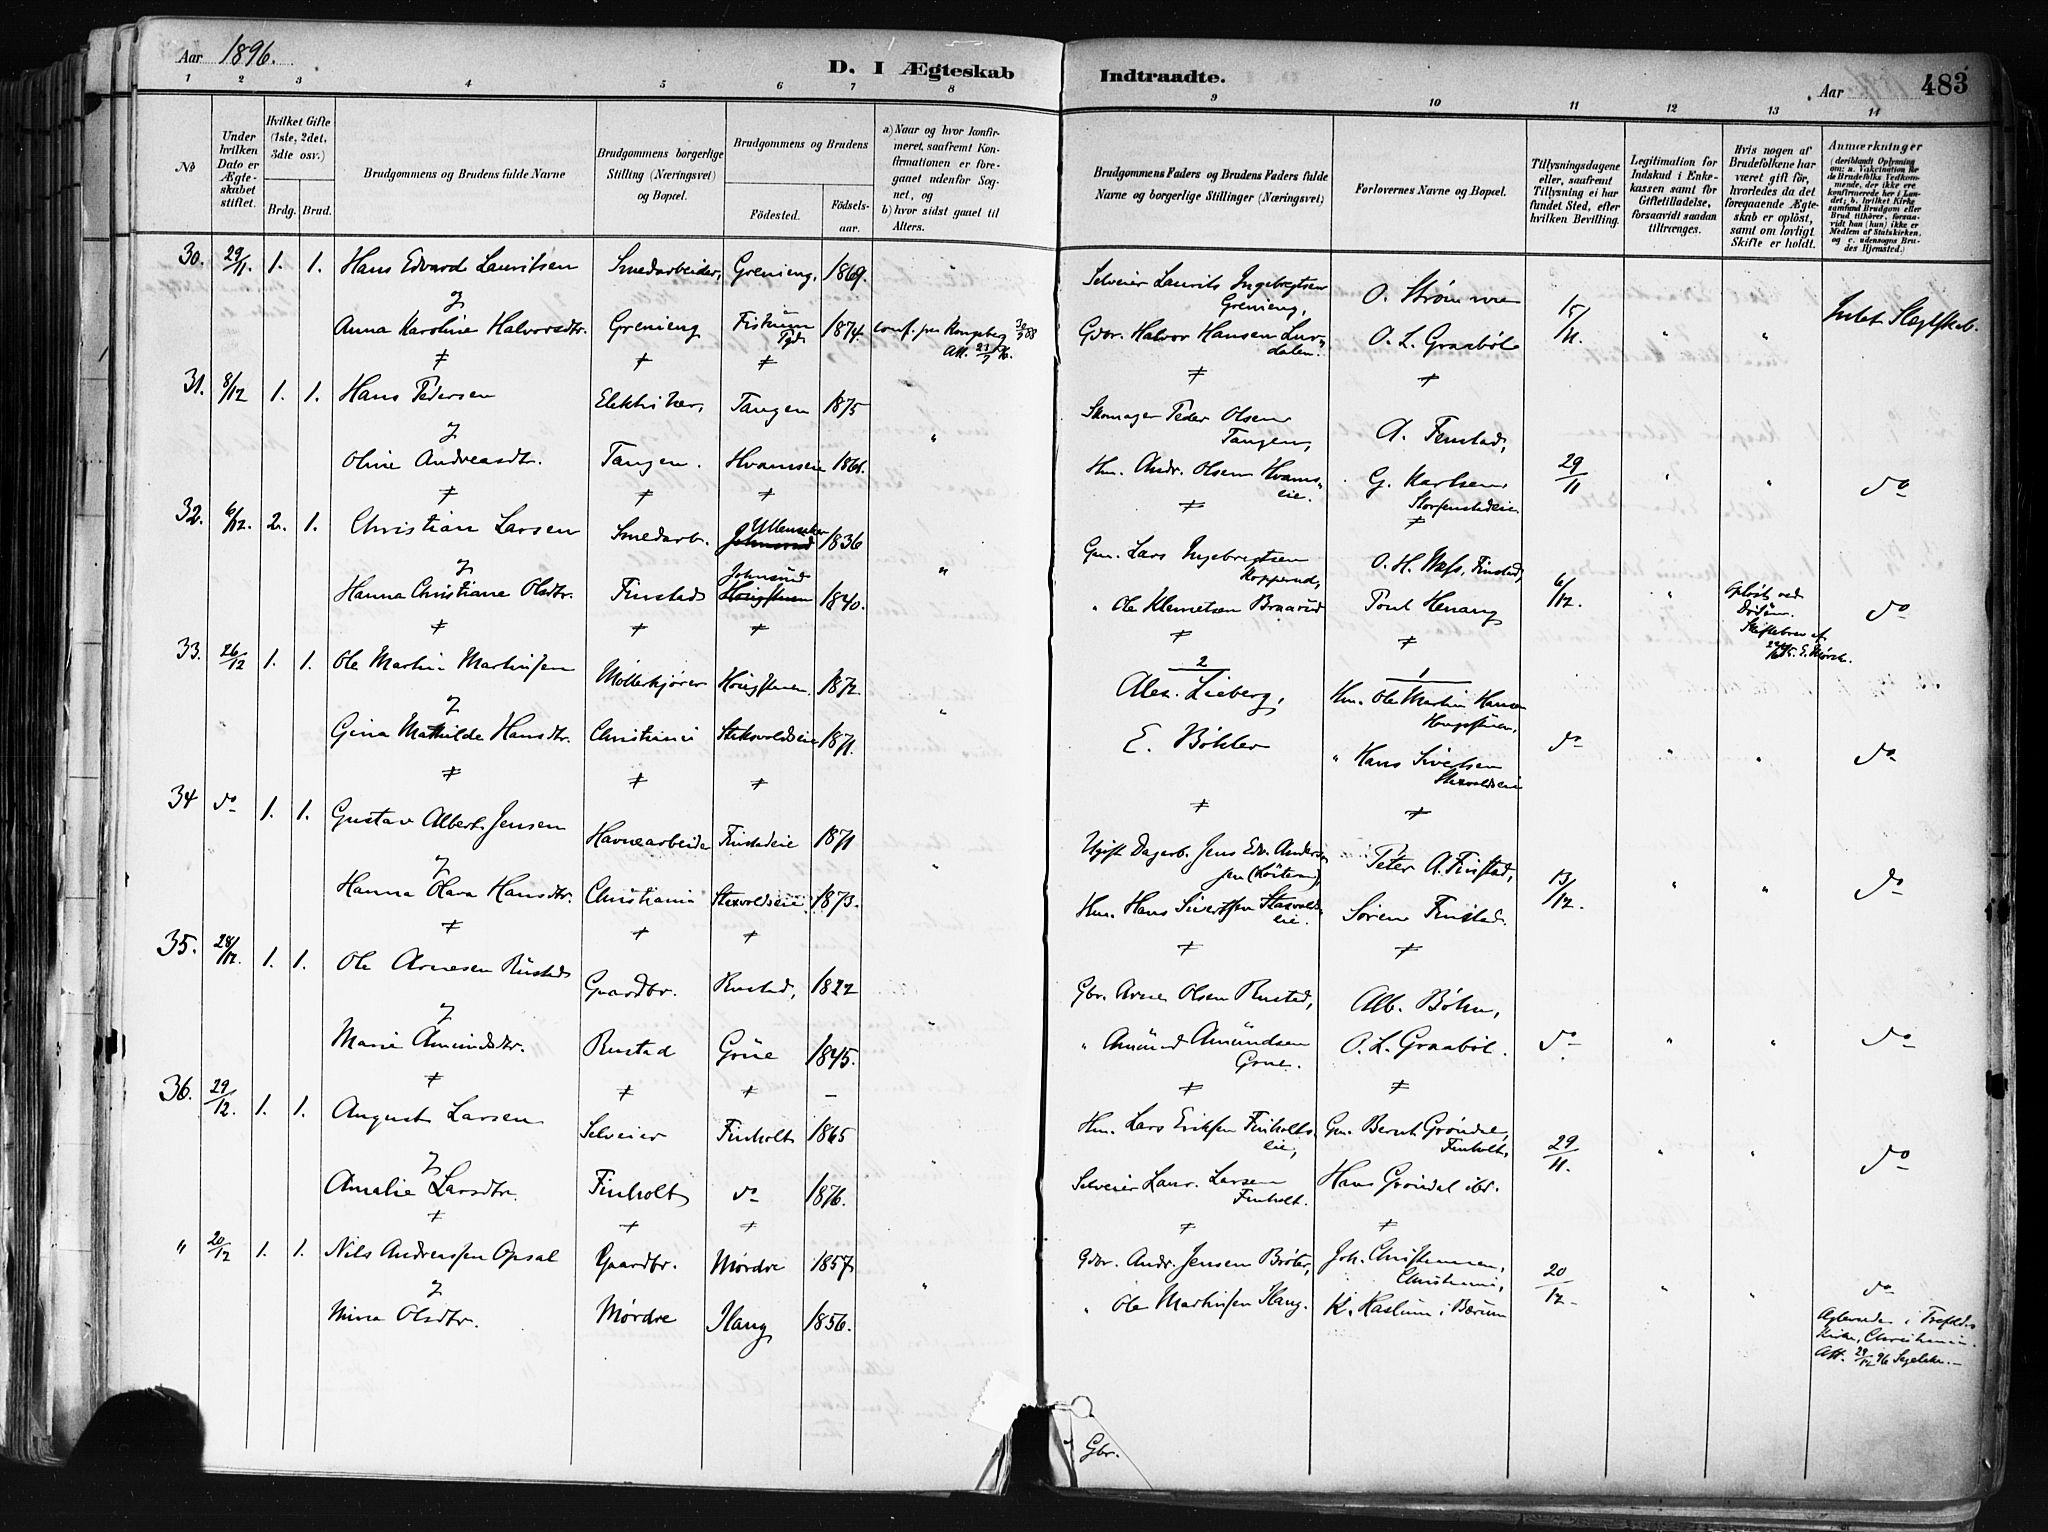 Aar 1896.
D. I Ægteskab Indtraadte.
Aar 483
1 2 3 4 5 6 7 8 9 10 11 12 13 14
No
Under hvilken Dato er Ægteskabet stiftet.
Hvilket Gifte (1ste, 2det, 3die osv.)
Brdg. Brud.
Brudgommens og Brudens fulde Navne
Brudgommens borgerlige Stilling (Næringsvei) og Bopæl.
Brudgommens og Brudens
Födested. Födselsaar.
a) Naar og hvor konfirmeret, saafremt Konfirmationen er foregaaet udenfor Sognet, og
b) hvor sidst gaaet til Alters.
Brudgommens Faders og Brudens Faders fulde Navne og borgerlige Stillinger (Næringsvei)
Forlovernes Navne og Bopæl.
Tillysningsdagene eller, saafremt Tillysning ei har fundet Sted, efter hvilken Bevilling.
Legitimation for Indskud i Enkekassen samt for Giftetilladelse, forsaavidt saadan tiltrænges.
Hvis nogen af Brudefolkene har været gift før, hvorledes da det foregaaende Ægteskab er opløst, samt om lovligt Skifte er holdt.
Anmærkninger
30. 29/11. 1. 1. Hans Edvard Lauritsen Smedarbeider, Grenieng, 1869. " Selveier Laurits Ingebregtsen Grenieng, O. Strømme 15/11 " " Intet Slægtskab.
Anna Karoline Halvorsdtr. Grenieng Fiskum Pgd. 1874. conf. paa Kongsberg Att. Gbr. Halvor Hansen Lurdalen. O. L. Graabøl
31. 8/12 1. 1. Hans Pedersen Elektriker, Tangen 1875 Skomager Peder Olsen Tangen, A. Finstad,
Oline Andreasdtr. Tangen. Hvamseie " Hm. Andr. Olsen Hvamseie. G. Karlsen Storfinstadeie 29/11 " " do
32. 6/12. 2. 1. Christian Larsen Smedarb. Ullensaker 1836 Gm. Lars Ingebregtsen Kopperud, O. H. Finstad,
Hanna Christiane Olsdtr. Finstad Johnsrud 1840. " " Ole Klemetsen Braarud Henang 6/12. " Opløst ved Døden. Skiftebrev af do
33. 26/12 1. 1. Ole Martin Martinsen Møllerkjører Hougstuen 1872. 2 Alex. Lieberg, 1 Hm. Ole Martin Hansen Hougstuen,
Gina Mathilde Hansdtr. Christiania Steksvoldseie 1871. " E. Bøhler " Hans Sivertsen do " " do
34 do 1. 1. Gustav Albert Jensen Havnearbeider Finstadeie 1871 Ugift Dagarb. Jens Edv. Andersen Peter A. Finstad,
Hanna Olava Hansdtr. Christiania 1873. " Hm. Hans Sivertsen Søren Finstad. 13/12. " " do
35. 28/12. 1. 1. Ole Arnesen Rustad Gaardbr. Rustad, 1822 Gbr. Arne Olsen Rustad, Alb. Bøhn,
Marie Amundsdtr. Rustad Grüe 1845. " " Amund Amundsen Grue. O. L. Graabøl. do " " do
36. 29/12. 1. 1. August Larsen Selveier Finholt 1865 Hm. Lars Eriksen Finholtseie, Gm. Bernt Grøndal, Finholt,
Amalie Larsdtr. Finholt do 1876. " Selveier Laur. Larsen Finholt. Hans Grøndal ibd. 29/11. " " do
" 20/12 1. 1. Nils Andreassen Opsal Gaardbr. Mørdre 1857 Gbr. Andr. Jensen Brøter, Joh. Christensen, Christiania,
Mina Olsdtr. Mørdre Ilang 1856. " " Ole Martinsen Ilang. K. Haslum i Bærum 20/12. " " do
Kirke, Christiania. Att. 29/12 96
Gbr.